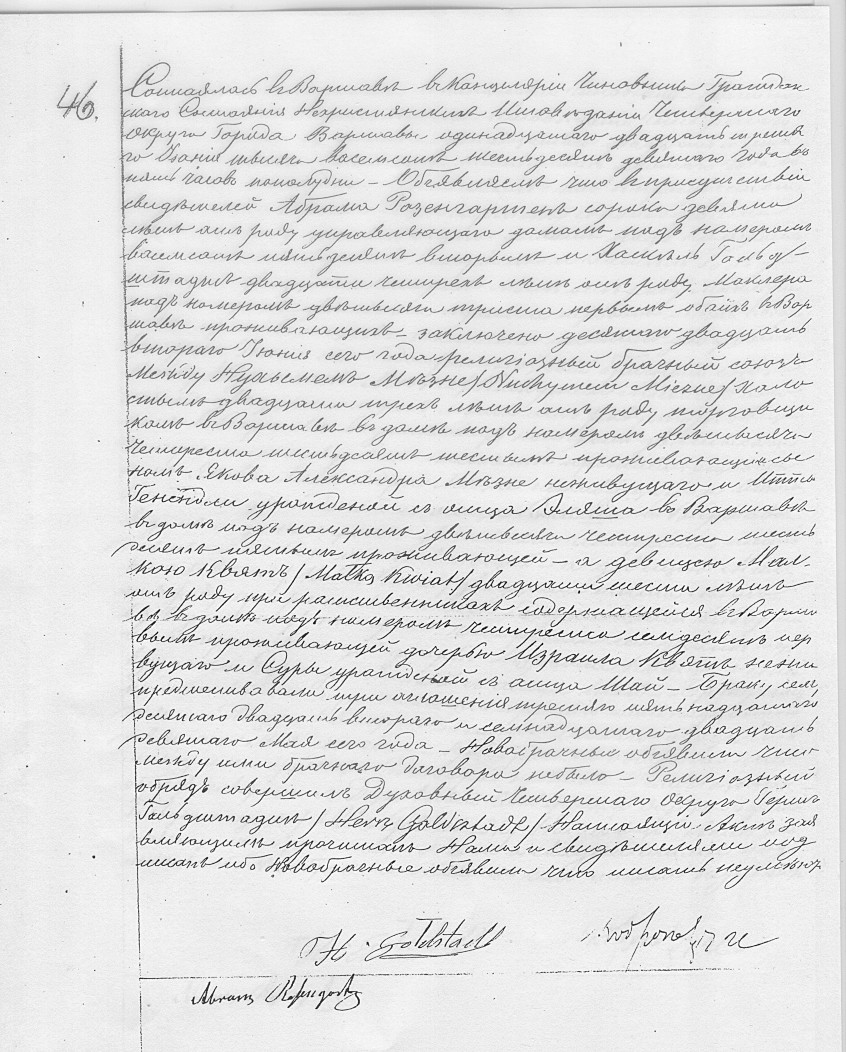 46.
Состоялась въ Варшавѣ въ Канцеляріи Чиновника Граждан
скаго Состоянія Нехристіянскихъ Исповѣданій Четвертаго
Округа Города Варшавы одинадцатаго двадцать треть
го Іюнія тысяча восемсотъ шестьдесятъ девятаго года въ
пять часовъ пополудни – Объявляемъ что въ присутствіи
свидѣтелей Абрама Розенгартенъ сорока девяти
лѣтъ отъ роду управляющаго домомъ подъ номеромъ
восемсотъ пятьдесятъ вторымъ и Хаскель Гольд/–
штадтъ двадцати четырехъ лѣтъ отъ роду Маклера
подъ номеромъ двѣтысячи триста первымъ обоихъ въ Вар
шавѣ проживающихъ – заключено десятаго двадцать
втораго Іюнія сего года религіозный брачный союзъ
между Нухымемъ Мѣзне /Nuchymem Miezne/ холо
стымъ двадцати трехъ лѣтъ отъ роду торговщи
комъ въ Варшавѣ въ домѣ подъ номеромъ двѣтысячи
четыреста шестьдесятъ шестымъ проживающимъ сы
номъ Якова Александра Мѣзне неживущаго и Итты
Генендли урожденой съ отца Эляша въ Варшавѣ
въ домѣ подъ номеромъ двѣтысячи четыреста шесть
десятъ пятымъ проживающей – а девицею Мал–
кою Квятъ /Małka Kwiat/ двадцати шести лѣтъ
отъ роду при родственникахъ содержащейся въ Варша
вѣ въ домѣ подъ номеромъ четыреста семдесятъ пер
вымъ проживающей дочерью Израила Квятъ нежи
вущаго и Суры урожденой съ отца Шай – Браку сему
предшествовали три оглошенія третяго пятьнадцатаго,
десятаго двадцать втораго и семнадцатаго двадцать
девятаго Мая сего года – Новобрачные объявили что
между ими брачнаго договора небыло – Религіозный
обрядъ совершилъ Духовный Четвертаго Округа Гершъ
Гольдштадтъ /Hersz Goldstadt/ Настоящій Актъ зая
вляющимъ прочитанъ Нами и свидѣтелями под
писанъ ибо Новобрачные объявили что писать неумѣютъ
H. Goldstadt
Abram